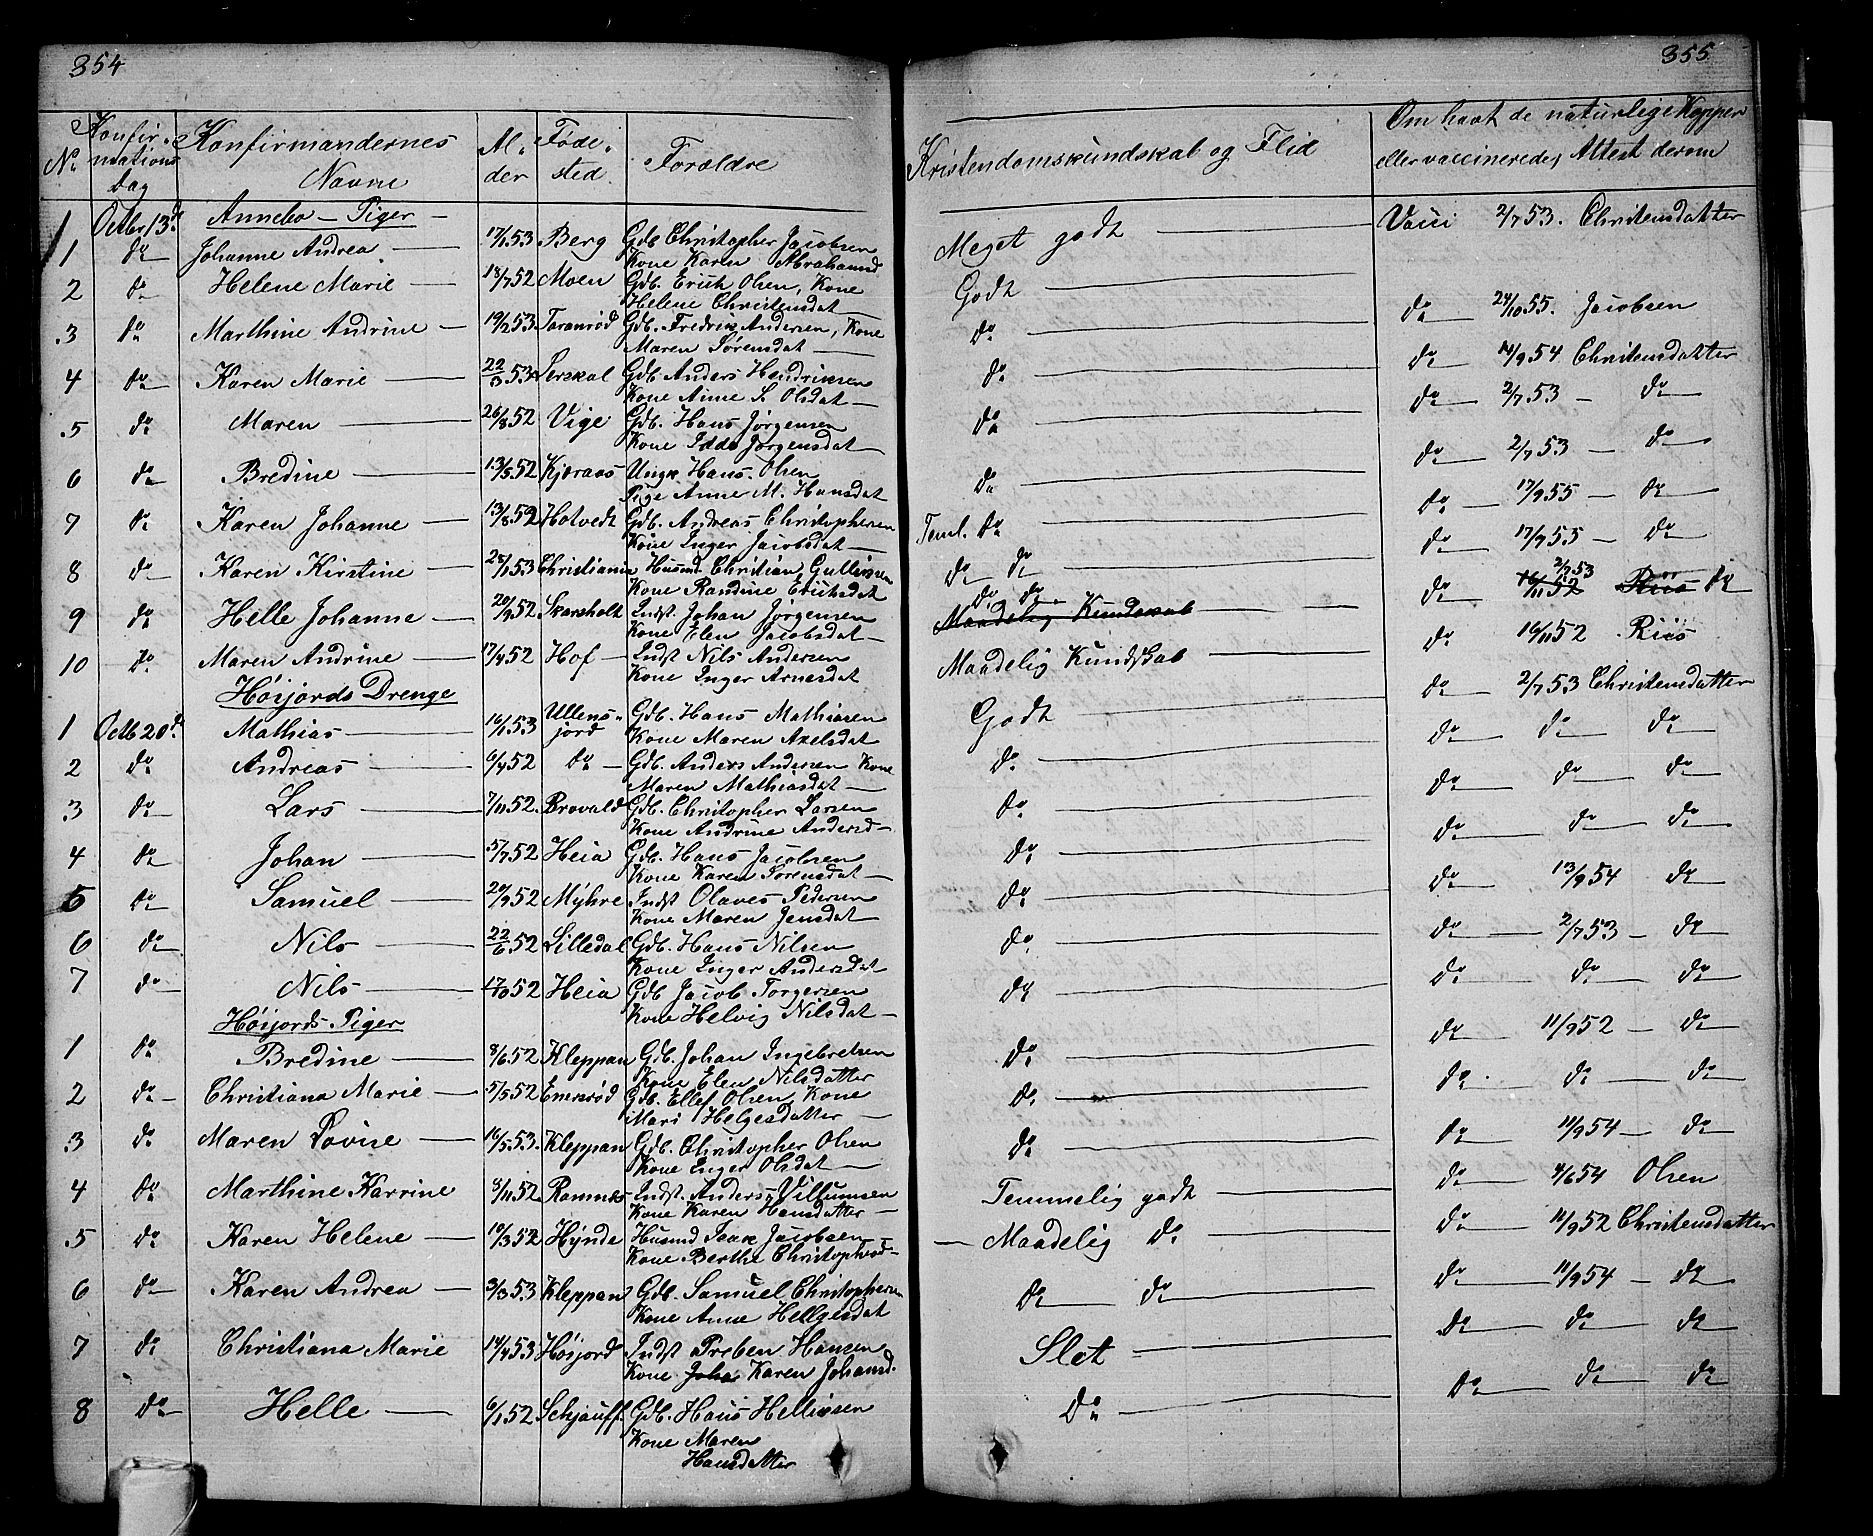 354
No
Konfir-
mations
Dag
Konfirmandernes
Navne
Al-
der
Føde-
sted
Forældre
Octbr 13d.
Annebo - Piger
1 do Johanne Andrea 17/1 53 Berg Gdb Christopher Jacobsen
Kone Karen Abrahamsd
2 do Helene Marie 18/7 52 Moen Gdb. Erich Olsen, Kone
Helene Christensdat
3 do Marthine Andrine 19/2 53 Taranrød Gdb. Fredrik Andersen, Kone
Maren Sørensdat
4 do Karen Marie 22/3 53 Gdb. Anders Hendriksen
Kone Anne S. Olsdat
5 do Maren 26/8 52 Vige Gdb. Hans Jørgensen
Kone Idde Jørgensdat
6 do Bredine 13/5 52 Kjæraas Ungk Hans Olsen
Pige Anne M. Hansdat
7 do Karen Johanne 13/8 52 Hotvedt Gdb. Andreas Christophersen
Kone Inger Jacobsdat
8 do Karen Kirstine 28/1 53 Christiania Husmd Christian Gulliksen
Kone Randine Erichsdat
9 do Helle Johanne 20/9 52 Skarsholt Indst. Johan Jørgensen
Kone Elen Jacobsdat
10 do Maren Andrine 17/4 52 Hof Indst Nils Andersen
Kone Inger Arnesdat
Høijords Drenge
1 Octb 20d. Mathias 16/1 53 Ullens-
jord Gdb. Hans Mathiasen
Kone Maren Axelsdat
2 do Andreas 6/4 52 do Gdb. Anders Andersen Kone
Maren Mathiasdat
3 do Lars 7/11 52 Brovald Gdb. Christopher Larsen
Kone Andrine Andersd
4 do Johan 5/7 52 Heia Gdb. Hans Jacobsen
Kone Karen Sørensdat
5 do Samuel 20/9 52 Myhre Indst Olaves Pedersen
Kone Maren Jensdat
6 do Nils 22/6 52 Lilledal Gdb. Hans Nilsen
Kone Inger Andersdat
7 do Nils 52 Heia Gdb Jacob Torgersen
Kone Helvig Nilsdat
Høijords Piger
1 do Bredine 8/6 52 Kleppan Gdb. Johan Ingebretsen
Kone Elen Nilsdatter
2 do Christiana Marie 5/5 52 Gdb. Ellef Olsen Kone
Mari Helgesdatter
3 do Maren Lovise 16/5 53 Kleppan Gdb. Christopher Olsen
Kone Inger Olsdat
4 do Marthine Karrine 8/11 52 Ramnes Indst. Anders Villumsen
Kone Karen Hansdatter
5 do Karen Helene 10/3 52 Hynde Husmd Isak Jacobsen
Kone Berthe Christophersd
6 do Karen Andrea 3/3 53 Kleppan Gdb. Samuel Christophersen
Kone Anne Hellgesdat
7 do Christiana Marie 14/4 53 Høijord Indst Preben Hansen
Kone Joha Karen Johansd.
8 do Helle 6/1 52 Schjauff. Gdb. Hans Hellissen
Kone Maren
Hansdatter
355
Kristendomskundskab og Flid
Om havt de naturlige Kopper
eller vaccinerede, Attest derom
Meget godt Vacci 2/7 53. Christensdatter
Godt do 24/10 55. Jacobsen
do do 14/9 54 Christensdatter
do do 2/7 53 do
do do 2/7 53 do
do do 17/9 55 do
Teml. do do 17/9 55 do
do do do 16/11 52 2/7 53 Riis do
do do
Maadelig Kundskab do 16/11 52 Riis
Maadelig Kundskab do 2/7 53 Christensdatter
Godt do do do
do do do do
do do do do
do do 13/9 54 do
do do 2/7 53 do
do do do do
do do 11/9 52 do
do do do do
do do 11/9 54 do
do do 4/6 54 Olsen
Temmelig godt do 11/9 52 Christensdatter
Maadelig do do 11/9 54 do
do do do do do
Slet do do do
do